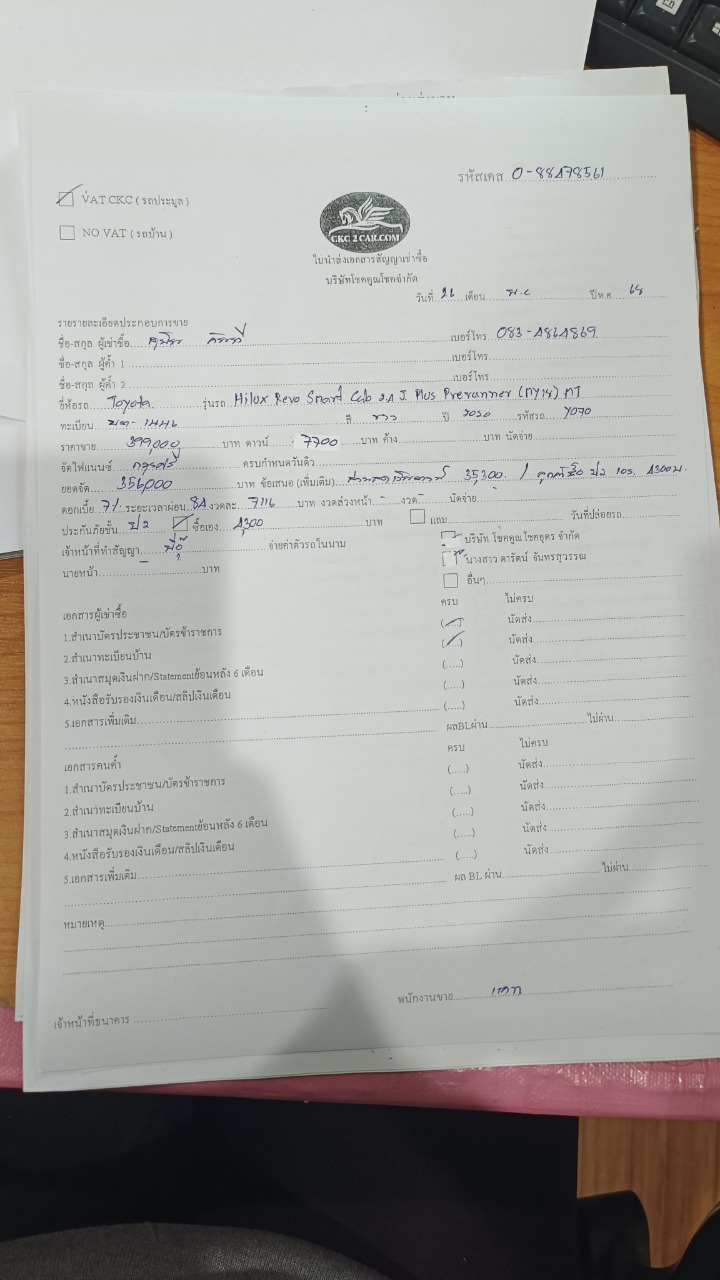 รหัสเคส 0-88478561
VAT CKC ( รถประมูล )
NO VAT ( รถบ้าน )
CKC 2CAR.COM
ใบนำส่งเอกสารสัญญาเช่าซื้อ
บริษัทโชคคูณโชคจำกัด
วันที่ 26 เดือน พ.ย ปีพ.ศ. 68
รายรายละเอียดประกอบการขาย
ชื่อ-สกุล ผู้เช่าซื้อ เบอร์โทร 083-4864869
ชื่อ-สกุล ผู้ค้ำ 1 เบอร์โทร
ชื่อ-สกุล ผู้ค้ำ 2 เบอร์โทร
ยี่ห้อรถ Toyota รุ่นรถ Hilux Revo Smart Cab 2.4 J Plus Prerunner (MY19) MT
ทะเบียน สี ขาว ปี 2020 รหัสรถ Y070
ราคาขาย 399,000 บาท ดาวน์ : 7700 บาท ค้าง บาท นัดจ่าย
จัดไฟแนนซ์ กรุงศรี ครบกำหนดวันคิว
ยอดจัด 356,000 บาท ข้อเสนอ (เพิ่มเติม) 35,300 / ลูกค้าซื้อ ป2 เอง 4300 บ.
ดอกเบี้ย 7% ระยะเวลาผ่อน 84 งวดละ 7116 บาท งวดล่วงหน้า - งวด - นัดจ่าย -
ประกันภัยชั้น ป2 ซื้อเอง 4,300 บาท แถม วันที่ปล่อยรถ
เจ้าหน้าที่ทำสัญญา จ่ายค่าตัวรถในนาม บริษัท โชคคูณโชคอุดร จำกัด
นายหน้า - บาท นางสาว ดารัตน์ จันทรสุวรรณ
อื่นๆ
เอกสารผู้เช่าซื้อ ครบ ไม่ครบ
1.สำเนาบัตรประชาชน/บัตรข้าราชการ (.....) นัดส่ง
2.สำเนาทะเบียนบ้าน (.....) นัดส่ง
3.สำเนาสมุดเงินฝาก/Statementย้อนหลัง 6 เดือน (.....) นัดส่ง
4.หนังสือรับรองเงินเดือน/สลิปเงินเดือน (.....) นัดส่ง
5.เอกสารเพิ่มเติม (.....) นัดส่ง
ผลBLผ่าน ไม่ผ่าน
เอกสารคนค้ำ ครบ ไม่ครบ
1.สำเนาบัตรประชาชน/บัตรข้าราชการ (.....) นัดส่ง
2.สำเนาทะเบียนบ้าน (.....) นัดส่ง
3.สำเนาสมุดเงินฝาก/Statementย้อนหลัง 6 เดือน (.....) นัดส่ง
4.หนังสือรับรองเงินเดือน/สลิปเงินเดือน (.....) นัดส่ง
5.เอกสารเพิ่มเติม (.....) นัดส่ง
ผล BL ผ่าน ไม่ผ่าน
หมายเหตุ
พนักงานขาย
เจ้าหน้าที่ธนาคาร